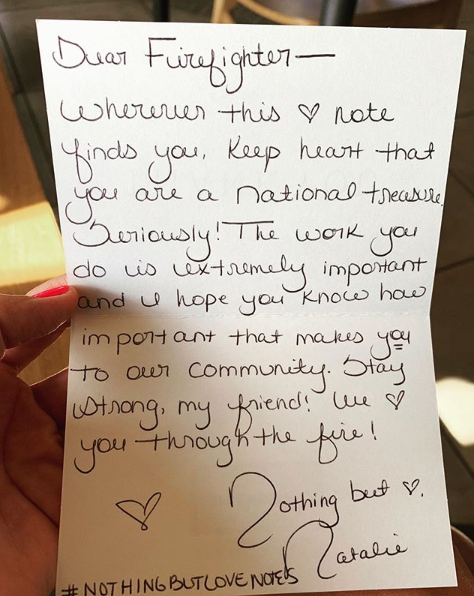 Dear Firefighter—
Wherever this ♡ note
finds you, Keep heart that
you are a national treasure.
Seriously! The work you
do is extremely important
and I hope you know how
important that makes you
to our community. Stay
strong, my friend! We ♡
you through the fire!
Nothing but ♡,
Natalie
#NOTHINGBUTLOVENOTES